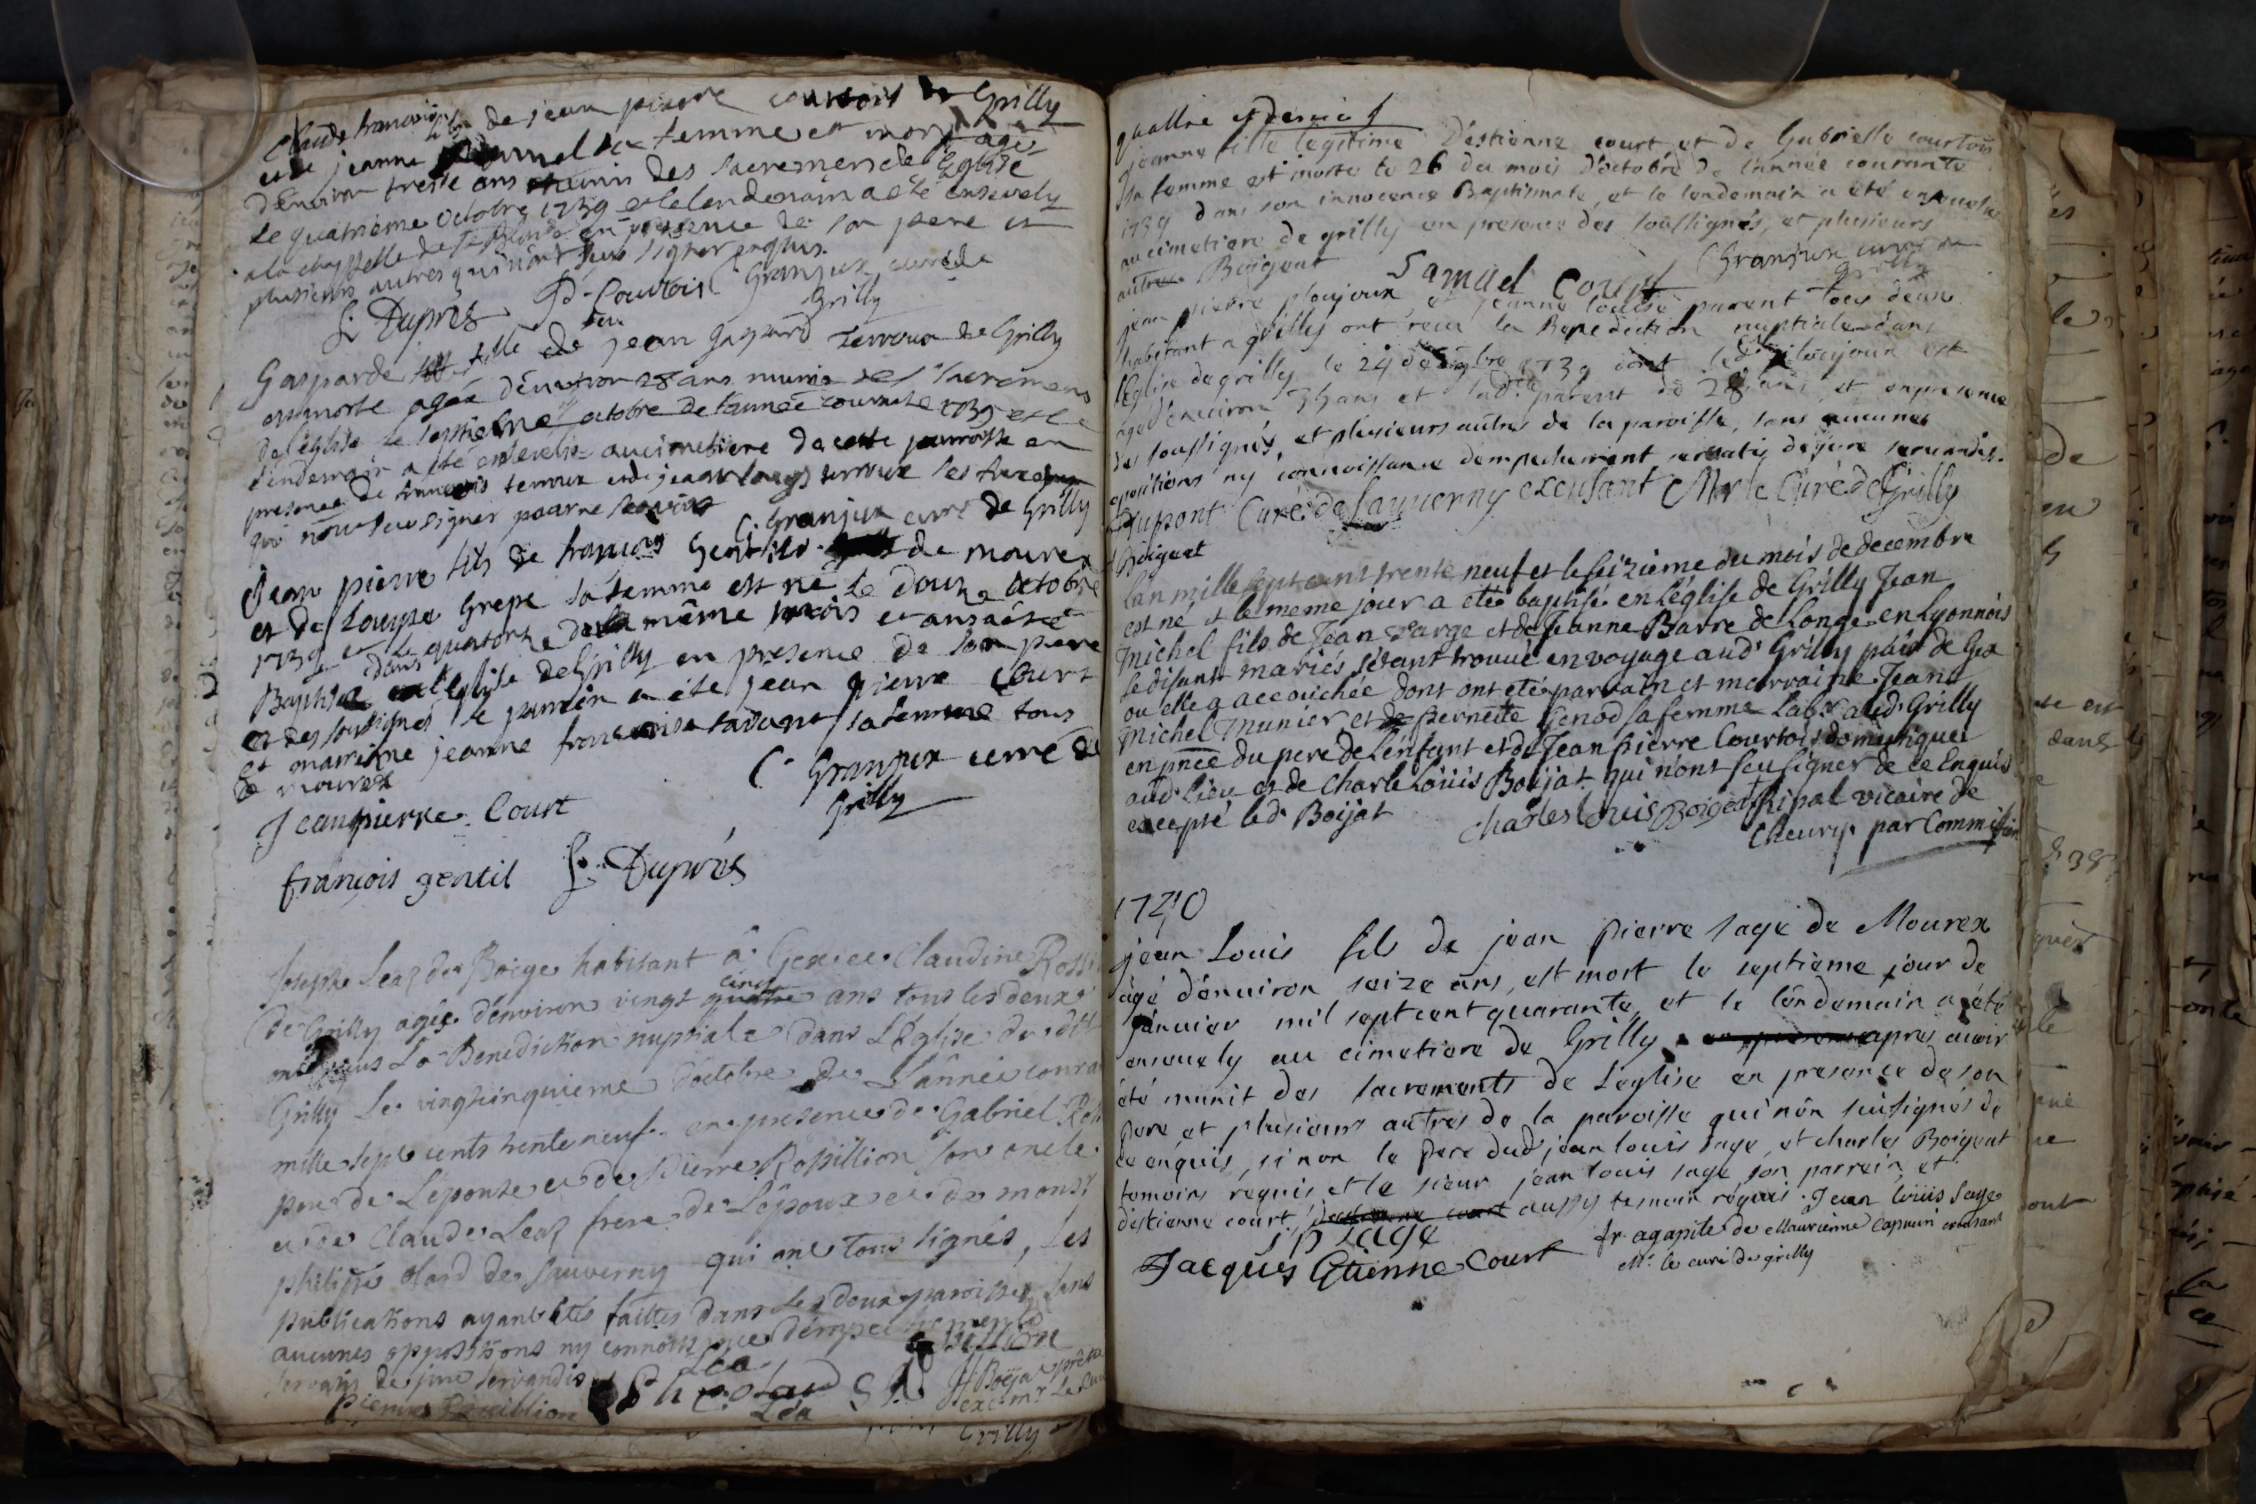 Claude françois fils de jean pierre courtois de Grilly
et de jeanne sa femme est mort agé
d'environ trente ans munis des sacremens de l'Eglise
le quatrieme octobre 1739 et le lendemain a eté ensevely
a la chappelle de en presence de son pere et
plusieurs autres qui n'ont seus signer enquis.
f. Duprés Courtois C. Granjux curé de
Grilly
Gasparde fille de feu jean gaspard terroux de Grilly
est morte agée d'environ 28 ans munie des sacremens
de l'église le septieme octobre de l'année courante 1739 et le
lendemain a été ensevelie au cimetiere de cette parroisse en
presence de françois terroux et de jean louys terroux ses freres
qui n'ont seu signer pour ne sçavoir
C. Granjux curé de Grilly
Jean pierre fils de françois Gentil de mourex
et de Louyse Grepe sa femme est né le douze octobre
1739 et le quatorze de la même mois et an a été
Baptisé dans l'eglise de Grilly en presence de son pere
et des soussignés le parrein a été jean pierre Court
et marreine jeanne françoise savant sa femme tous
de mourex C. Granjux curré de
Grilly
Jean pierre Court
françois gentil f. Duprés
Joseph Leaz de Boige habitant à Gex et Claudine Ross
de Grilly agée d'environ vingt cinq quatre ans tous les deux
ont reçus La Benediction nuptiale dans L'Eglise du dit
Grilly Le vingtcinquieme d'octobre de L'année coura
mille sept cents trente neuf en presence de Gabriel Ross
pere de L'épouse et de Pierre Rossillion son oncle
et de Claude Leaz frere de L'époux et de mons.r
philippe olard de Sauverny qui ont tous signés, les
publications ayant étés faittes dans Les deux paroisses sans
aucunes oppositions ny connoissance d'empechement
servatis de jure servandis
Pierre Rossillion Lea Boijat prêtre
exc. mr Le Curé
Grilly
quattre et demie
jeanne fille legitime d'estienne court et de Gabrielle courtois
sa femme est morte le 26 du mois d'octobre de l'année courante
1739 dans son innocence Baptismale, et le lendemain a été ensevelie
au cimetiere de grilly en presence des soussignés, et plusieurs
autres Boigeat Samuel Court C. Granjux curé de
Grilly
jean pierre ploujoux et jeanne louise parent tous deux
habitant a grilly ont reçu la Benediction nuptiale dans
l'Eglise de grilly le 24 1739 dont led. ploujoux est
agé d'environ 35 ans et lad. parent de 28 ans, et en presence
des soussignés, et plusieurs autres de la paroisse, sans aucunes
opositions ny connoissance d'empechement servatis de jure servandis.
Dupont Curé de Sauverny excusant Mr le Curé de Grilly
Boigeat
L'an mille sept cent trente neuf et le seizieme du mois de decembre
est né et le meme jour a eté baptisé en l'église de Grilly Jean
Michel fils de Jean Large et de Jeanne Barre de Longe en Lyonnois
se disant mariés s'étant trouvé en voyage aud. Grilly païs de Gex
ou elle a accouchée dont ont eté parrain et marraine Jean
Michel Munier et de pernette Genod sa femme Lab.r aud. Grilly
en pñce du pere de l'enfant et de Jean pierre Courtois domestique
aud. lieu et de Charle Loüis Boijat qui n'ont seu signer de ce Enquis
excepté led. Boijat Charles louis Boigeat Ripal vicaire de
Cheury par Commission
1740
jean Louis fils de jean pierre sage de Mourex
agé d'environ seize ans, est mort le septième jour de
janvier mil sept cent quarante, et le lendemain a été
ensevely au cimetiere de Grilly apres avoir
été munit des sacrements de l'eglise en presence de son
pere et plusieurs autres de la paroisse qui n'ôn seu signer de
ce enquis, si non le pere dud. jean louis sage, et charles Boigeat
temoins requis et le sieur jean louis sage son parrein et
d'estienne court aussy temoin requis. Jean loüis sage
j p sage fr. agapite de Maurienne Capucin excusant
Jacques Etienne Court Mr. le curé de grilly